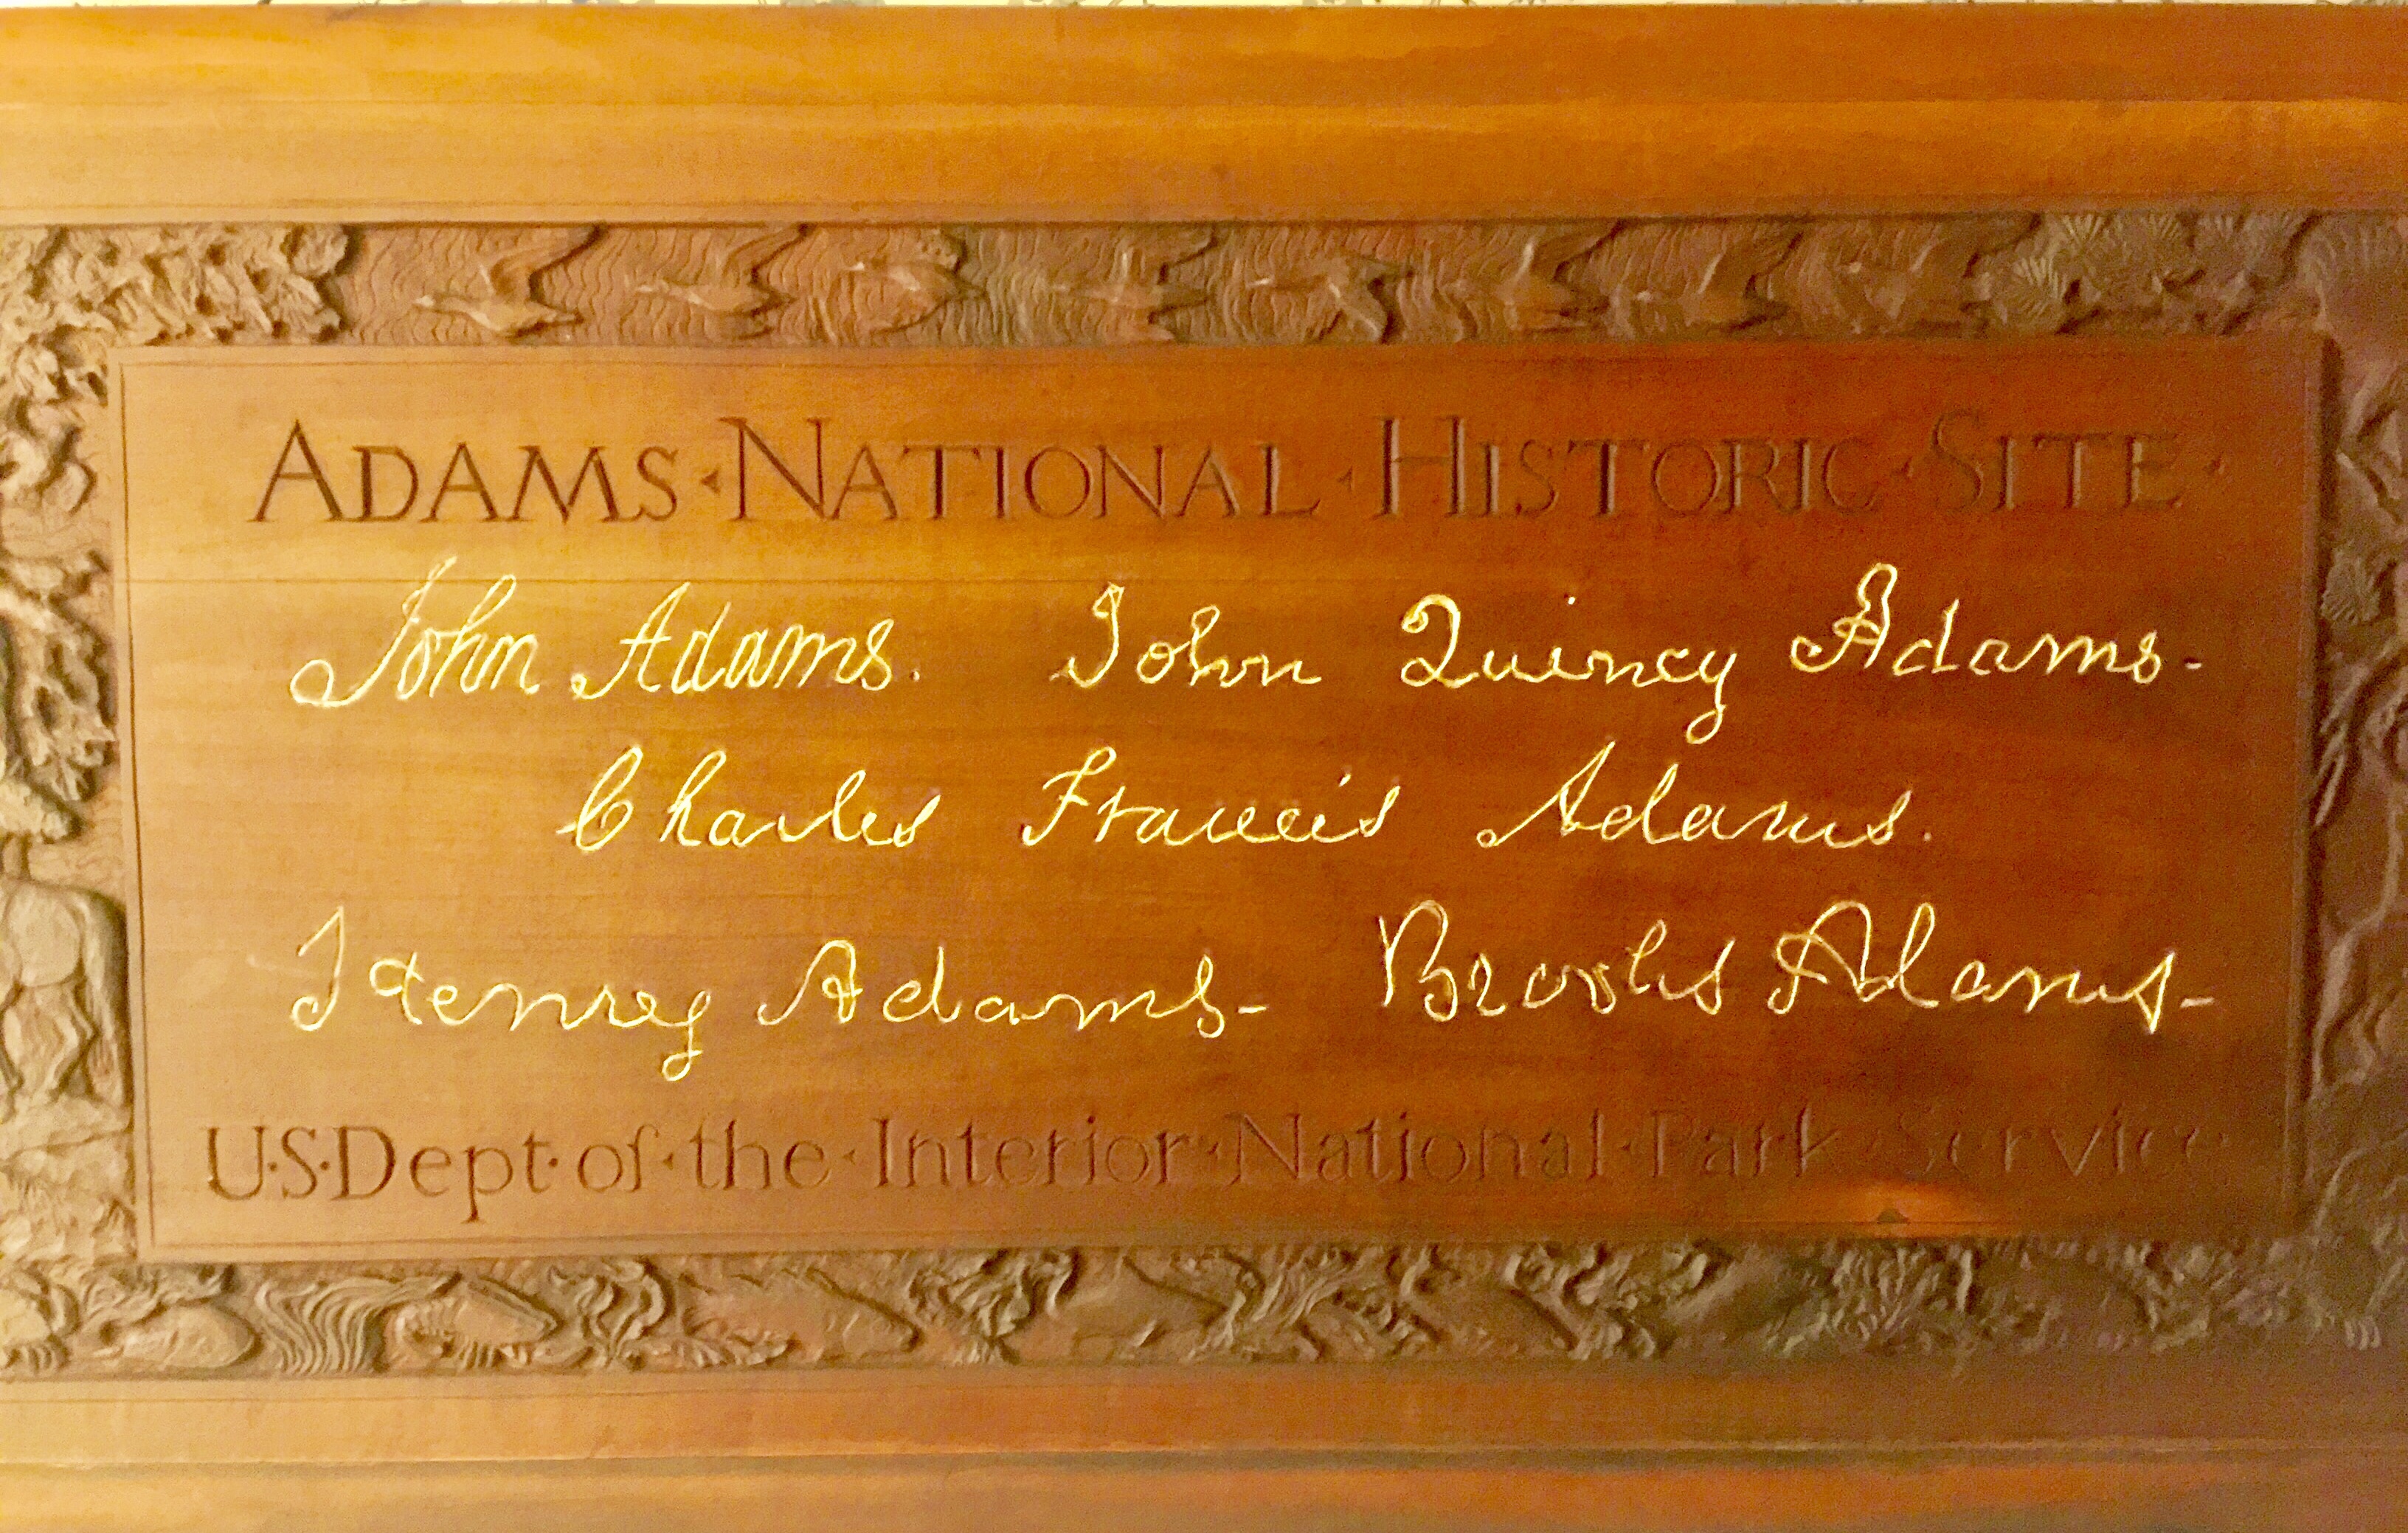 ADAMS·NATIONAL·HISTORIC·SITE·
John Adams. John Quincy Adams-
Charles Francis Adams.
Henry Adams- Brooks Adams-
U·S·Dept·of·the·Interior·National·Park·Service